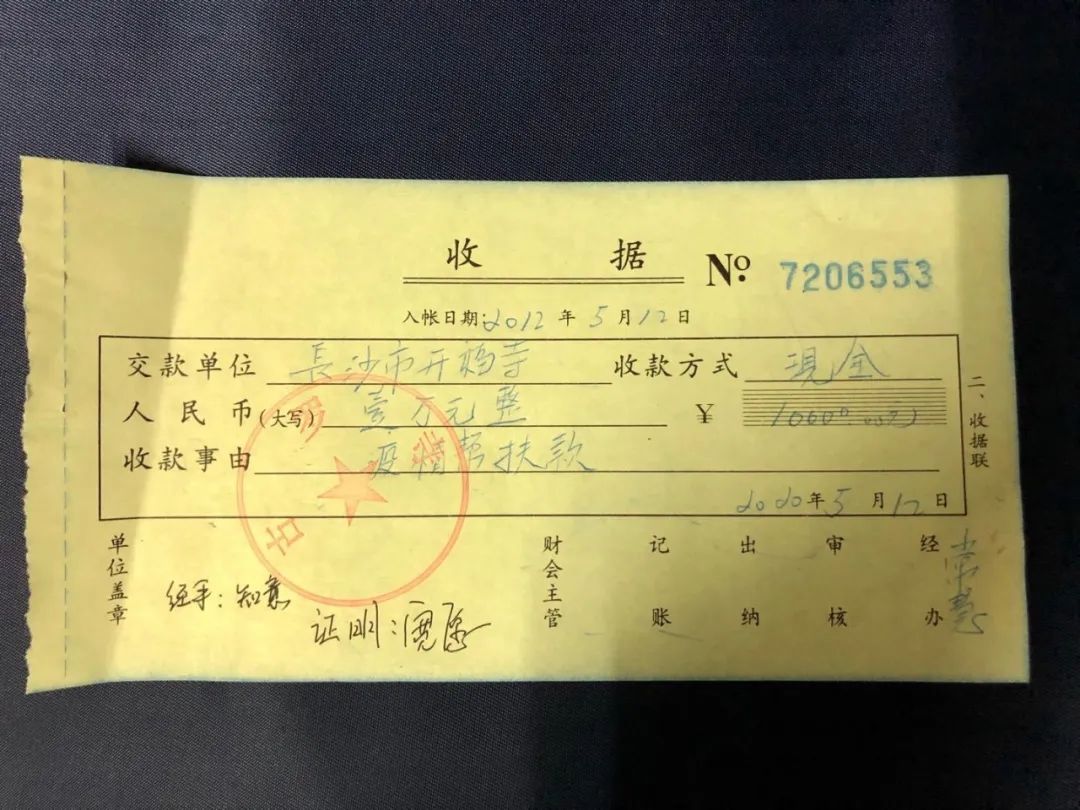 收 据 Nº 7206553
入帐日期:2012年5月12日
交款单位 長沙市开福寺 收款方式 現金
人民币(大写) 壹万元整 ¥ 10000.00元
收款事由 疫情帮扶款
2020年5月12日
二、收据联
单位盖章 财会主管 记账 出纳 审核 经办
经手:知意
证明:
古 罗